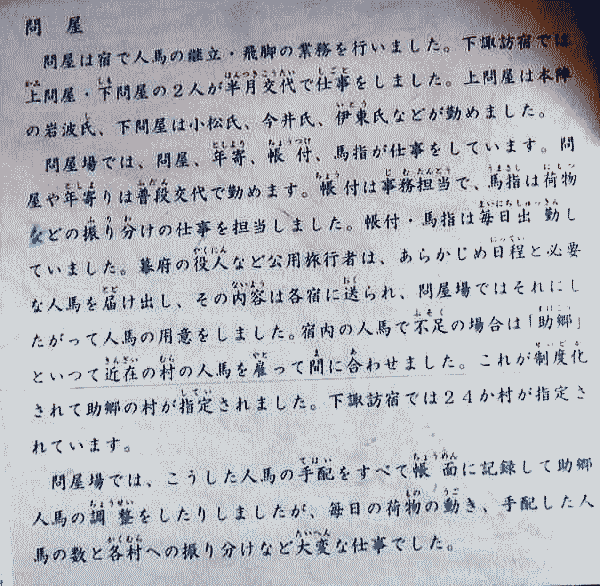 問屋
問屋は宿で人馬の継立・飛脚の業務を行いました。下諏訪宿では
上問屋・下問屋の２人が半月交代で仕事をしました。上問屋は本陣
の岩波氏、下問屋は小松氏、今井氏、伊東氏などが勤めました。
問屋場では、問屋、年寄、帳付、馬指が仕事をしています。問
屋や年寄りは普段交代で勤めます。帳付は事務担当で、馬指は荷物
などの振り分けの仕事を担当しました。帳付・馬指は毎日出勤し
ていました。幕府の役人など公用旅行者は、あらかじめ日程と必要
な人馬を届け出し、その内容は各宿に送られ、問屋場ではそれにし
たがって人馬の用意をしました。宿内の人馬で不足の場合は「助郷」
といつて近在の村の人馬を雇って間に合わせました。これが制度化
されて助郷の村が指定されました。下諏訪宿では２４か村が指定さ
れています。
問屋場では、こうした人馬の手配をすべて帳面に記録して助郷
人馬の調整をしたりしましたが、毎日の荷物の動き、手配した人
馬の数と各村への振り分けなど大変な仕事でした。